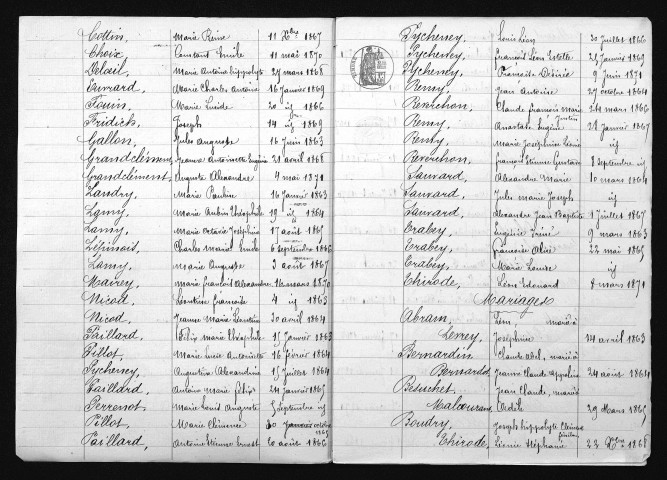 Cottin, Marie Reine 11 Xbre 1867
Choix, Constant Emile 11 mai 1870
Délail, Marie Antoine hippolyte 29 mars 1868
Marie Charles Antoine 16 janvier 1869
Fouin, Marie 20 ij 1866
Fridick, Joseph 14 ij 1869
Gallon, Jules Auguste 16 juin 1863
Grandclément, Jeanne Antoinette Eugénie 21 avril 1868
Grandclément, Auguste Alexandre 4 mai 1871
Landry, Marie Pauline 16 janvier 1863
Lamy, Marie Aubin Théophile 19 ij 1864
Lamy, Marie Octavie Joséphine 17 août 1865
Lépinois, Charles Marie Emile 6 septembre 1866
Lamy, Marie Auguste 3 août 1867
Mairey, Marie François Alexandre 16 mars 1870
Nicod, Léontine Françoise 4 ij 1863
Nicod, Jeanne Marie 30 avril 1864
Paillard, Félix Marie Théophile 15 janvier 1863
Pillot, Marie Lucie Antoinette 16 février 1864
Pycheney, Augustine Alexandrine 15 juillet 1864
Paillard, Antoine Marie Félix 24 janvier 1865
Perrenot, Marie Louis Auguste 5 septembre ij
Pillot, Marie Clémence 30 octobre 1865
Paillard, Antoine Etienne Ernest 20 août 1866
Pycheney, Louis Léon 30 juillet 1866
Pycheney, François Léon 21 janvier 1869
Pycheney, Françoise Désirée 9 juin 1871
Remy, Jean Antoine 27 octobre 1864
Reverchon, Claude François Marie 24 mars 1866
Remy, Anastase Eugène Justin 28 janvier 1867
Remy, Marie Joséphine ij
Reverchon, François Etienne Gustave 8 septembre ij
Sauvard, Alexandre Marie 10 mars 1864
Sauvard, Jules Marie Joseph ij
Sauvard, Alexandre Jean Baptiste 1 juillet 1867
Trabey, Eugénie 9 mars 1863
Trabey, Françoise Alix 22 mai 1865
Trabey, Marie Louise ij
Thirode, Léon Edouard 8 mars 1871
Mariages
Abram, Léon, marié à
Levrey, Joséphine 24 avril 1863
Bernardin Claude Abel, marié à
Bernardot, Jeanne Claude Appoline 24 août 1864
Besuchet, Jean Claude, marié à
Malcourant, Adèle 29 mars 1865
Boudry, Joseph hippolyte
Thirode, Léonie Stéphanie 22 Xbre 1868